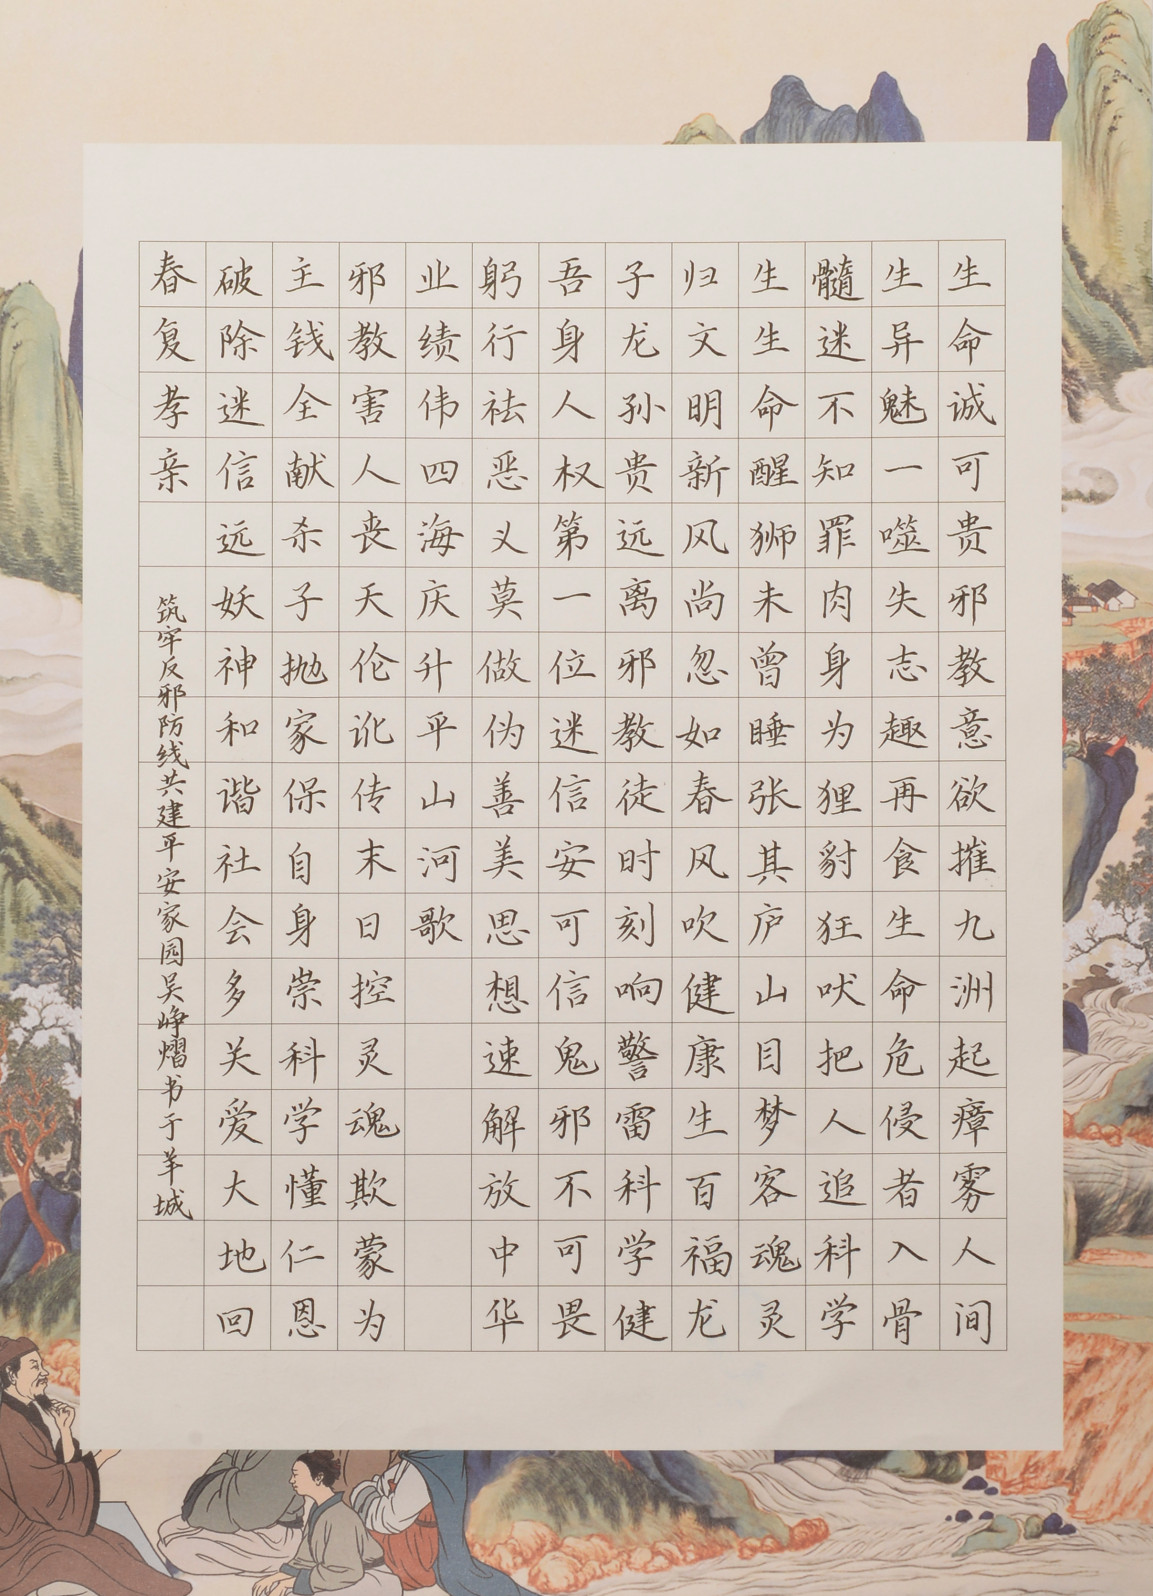 生命诚可贵邪教意欲摧九洲起瘴雾人间
生异魅一噬失志趣再食生命危侵者入骨
髓迷不知罪肉身为狸豺狂吠把人追科学
生生命醒狮未曾睡张其庐山目梦客魂灵
归文明新风尚忽如春风吹健康生百福龙
子龙孙贵远离邪教徒时刻响警雷科学健
吾身人权第一位迷信安可信鬼邪不可畏
躬行祛恶义莫做伪善美思想速解放中华
业绩伟四海庆升平山河歌
邪教害人丧天伦讹传末日控灵魂欺蒙为
主钱全献杀子抛家保自身崇科学懂仁恩
破除迷信远妖神和谐社会多关爱大地回
春复孝亲
筑牢反邪防线共建平安家园吴峥熠书于羊城